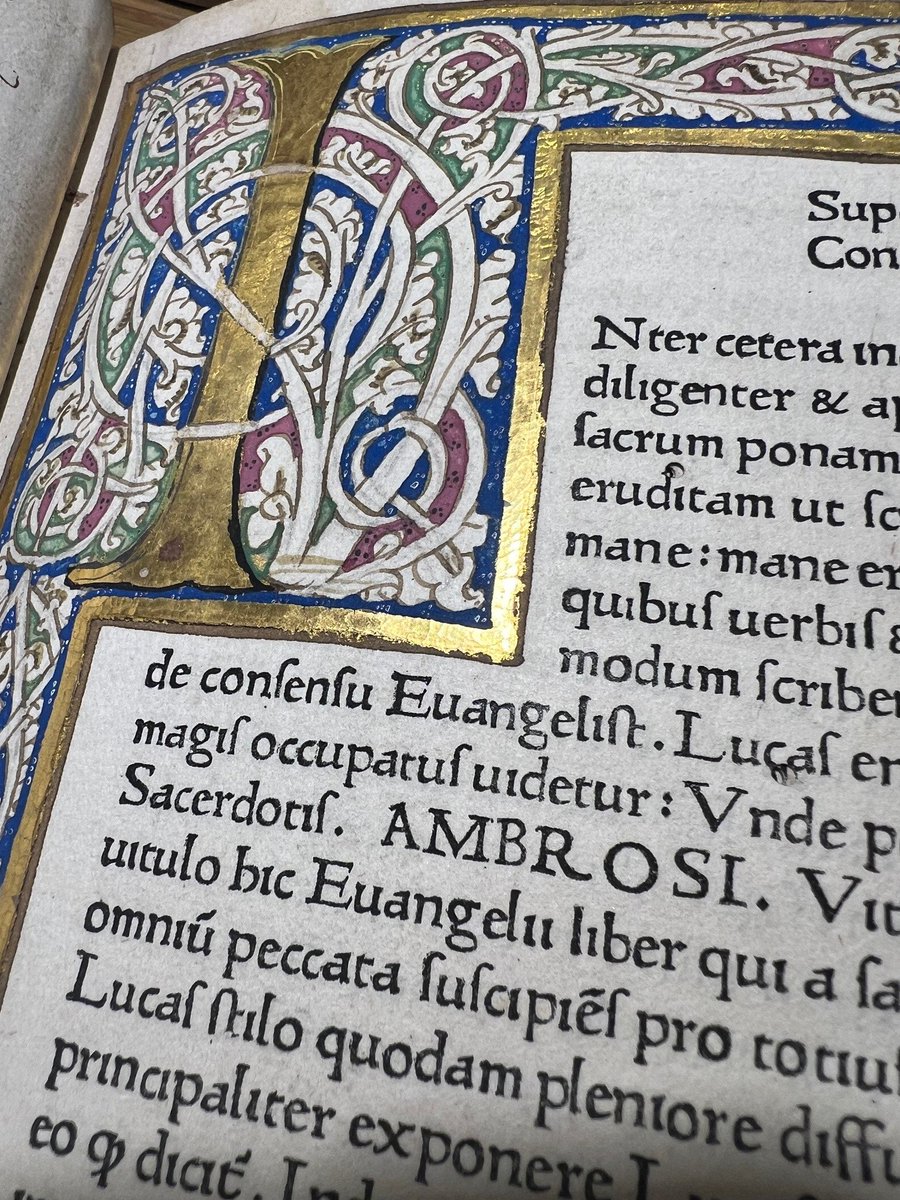 Sup
Con
INter cetera in
diligenter & a
ſacrum ponam
eruditam ut ſc
mane: mane er
quibuſ uerbiſ &
modum ſcribe
de conſenſu Euangeliſt. Lucaſ er
magiſ occupatuſ uidetur: Vnde p
Sacerdotiſ. AMBROSI. Vit
uitulo hic Euangelii liber qui a ſa
omniū peccata ſuſcipiēſ pro totiuſ
Lucaſ ſtilo quodam pleniore diffu
principaliter exponere
eo ꝙ dicit̄. Ind